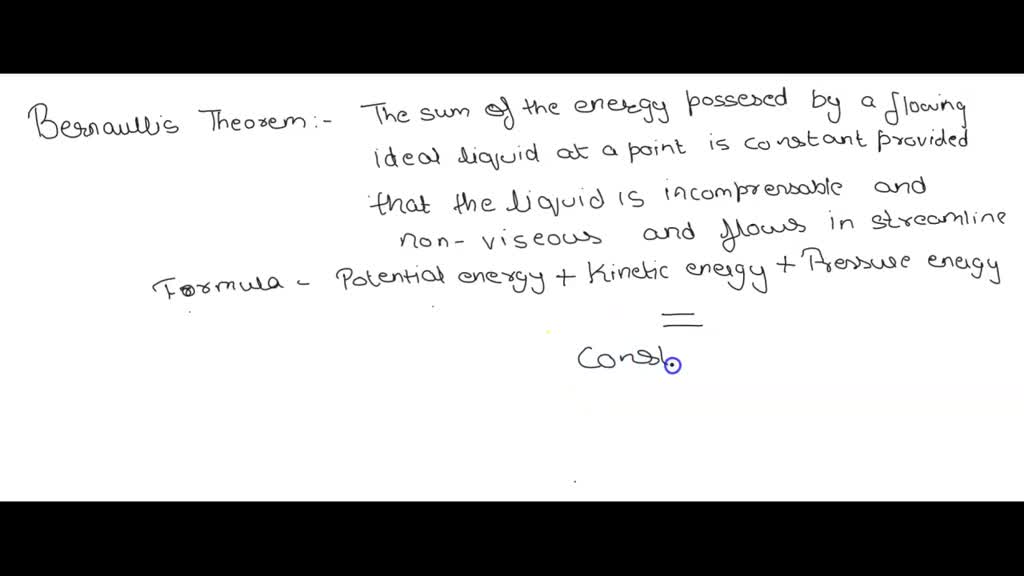 Bernaullis Theorem:- The sum of the energy possesed by a flowing
ideal liquid at a point is constant provided
that the liquid is incompressable and
non-viseous and flows in streamline
Formula - Potential energy + Kinetic energy + Pressure energy
=
Const